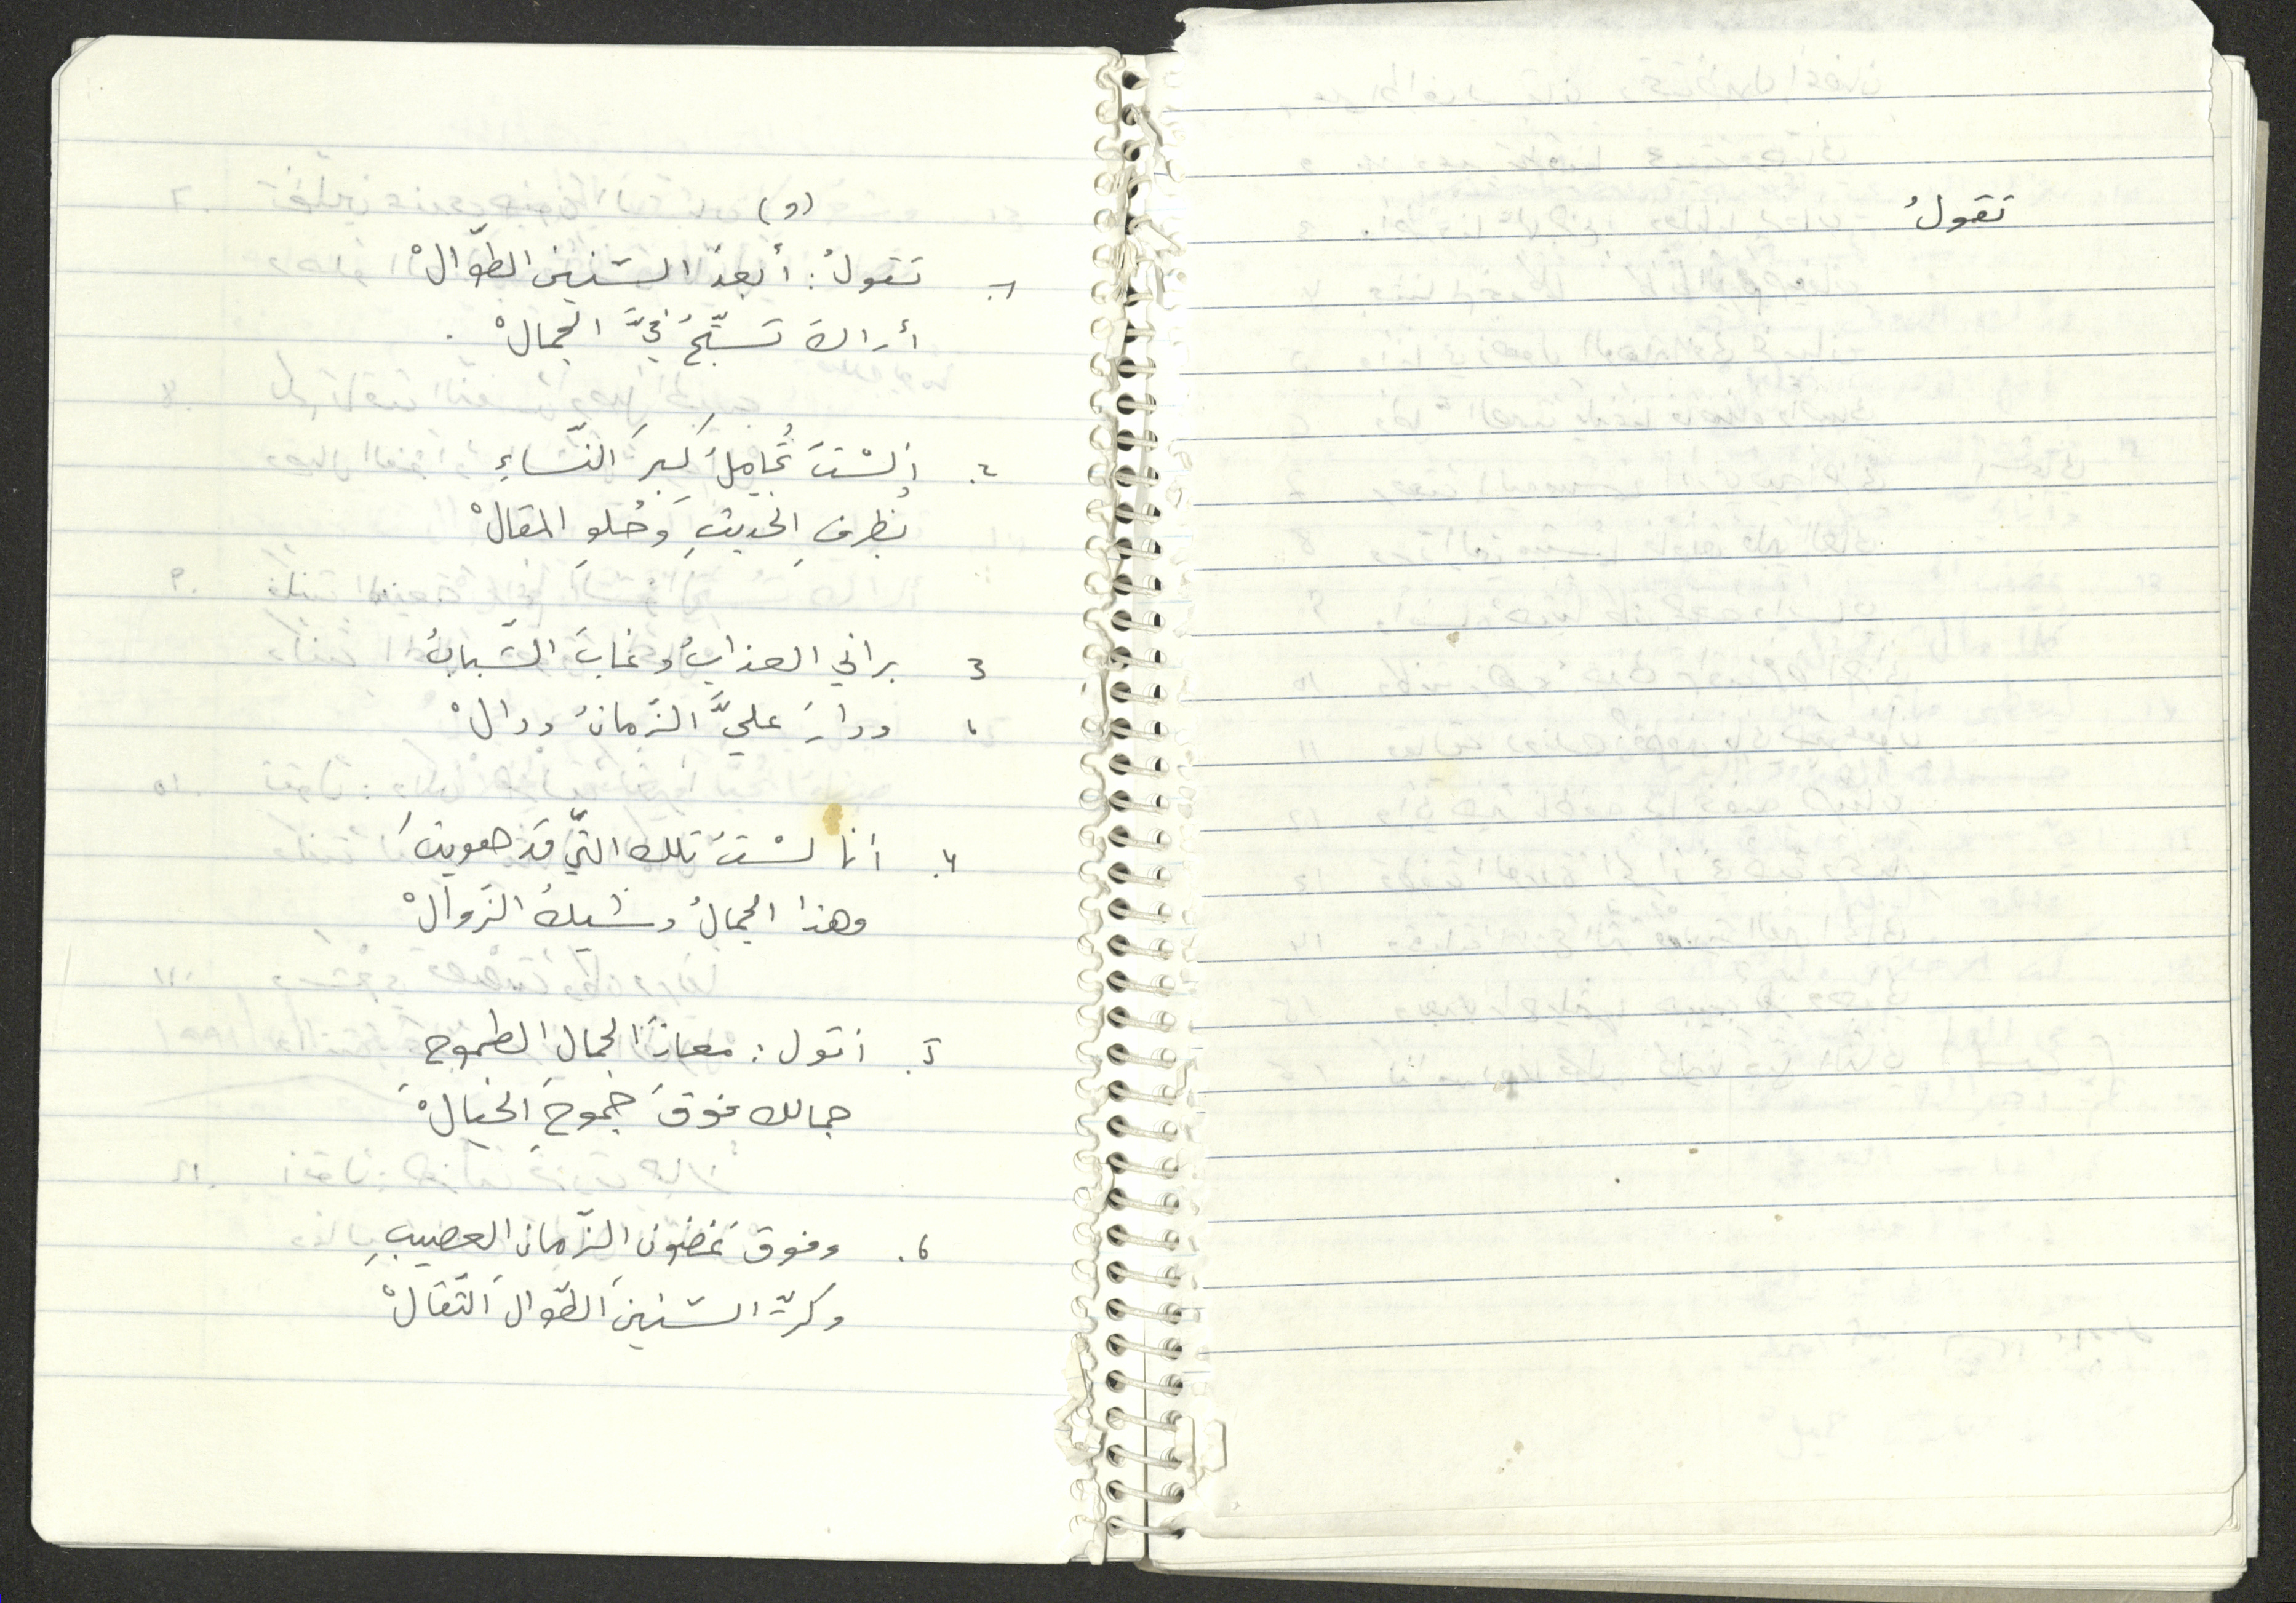 تقولُ
(و)
1. تقولُ: أبعدَ السّنينَ الطّوالْ
أراكَ تسبّحُ فيَّ الجمالْ.
2. ألسْتَ تُجاملُ كِبرَ النّساءِ
بظرفِ الحديثِ وحُلوِ المقالْ
3 براني العذابُ وغابَ الشّبابُ
ودارَ عليَّ الزّمانُ ودالْ
4. أنا لسْتُ تلك التّي قد هويتَ
وهذا الجمالُ وشيكُ الزّوالْ
5. أقول: معاذَ الجمالِ الطموح
جمالك فوقَ جموحِ الخيالْ
6. وفوق غضونِ الزّمانِ العصيبِ
وكرِّ السّنينَ الطّوالِ الثّقالْ